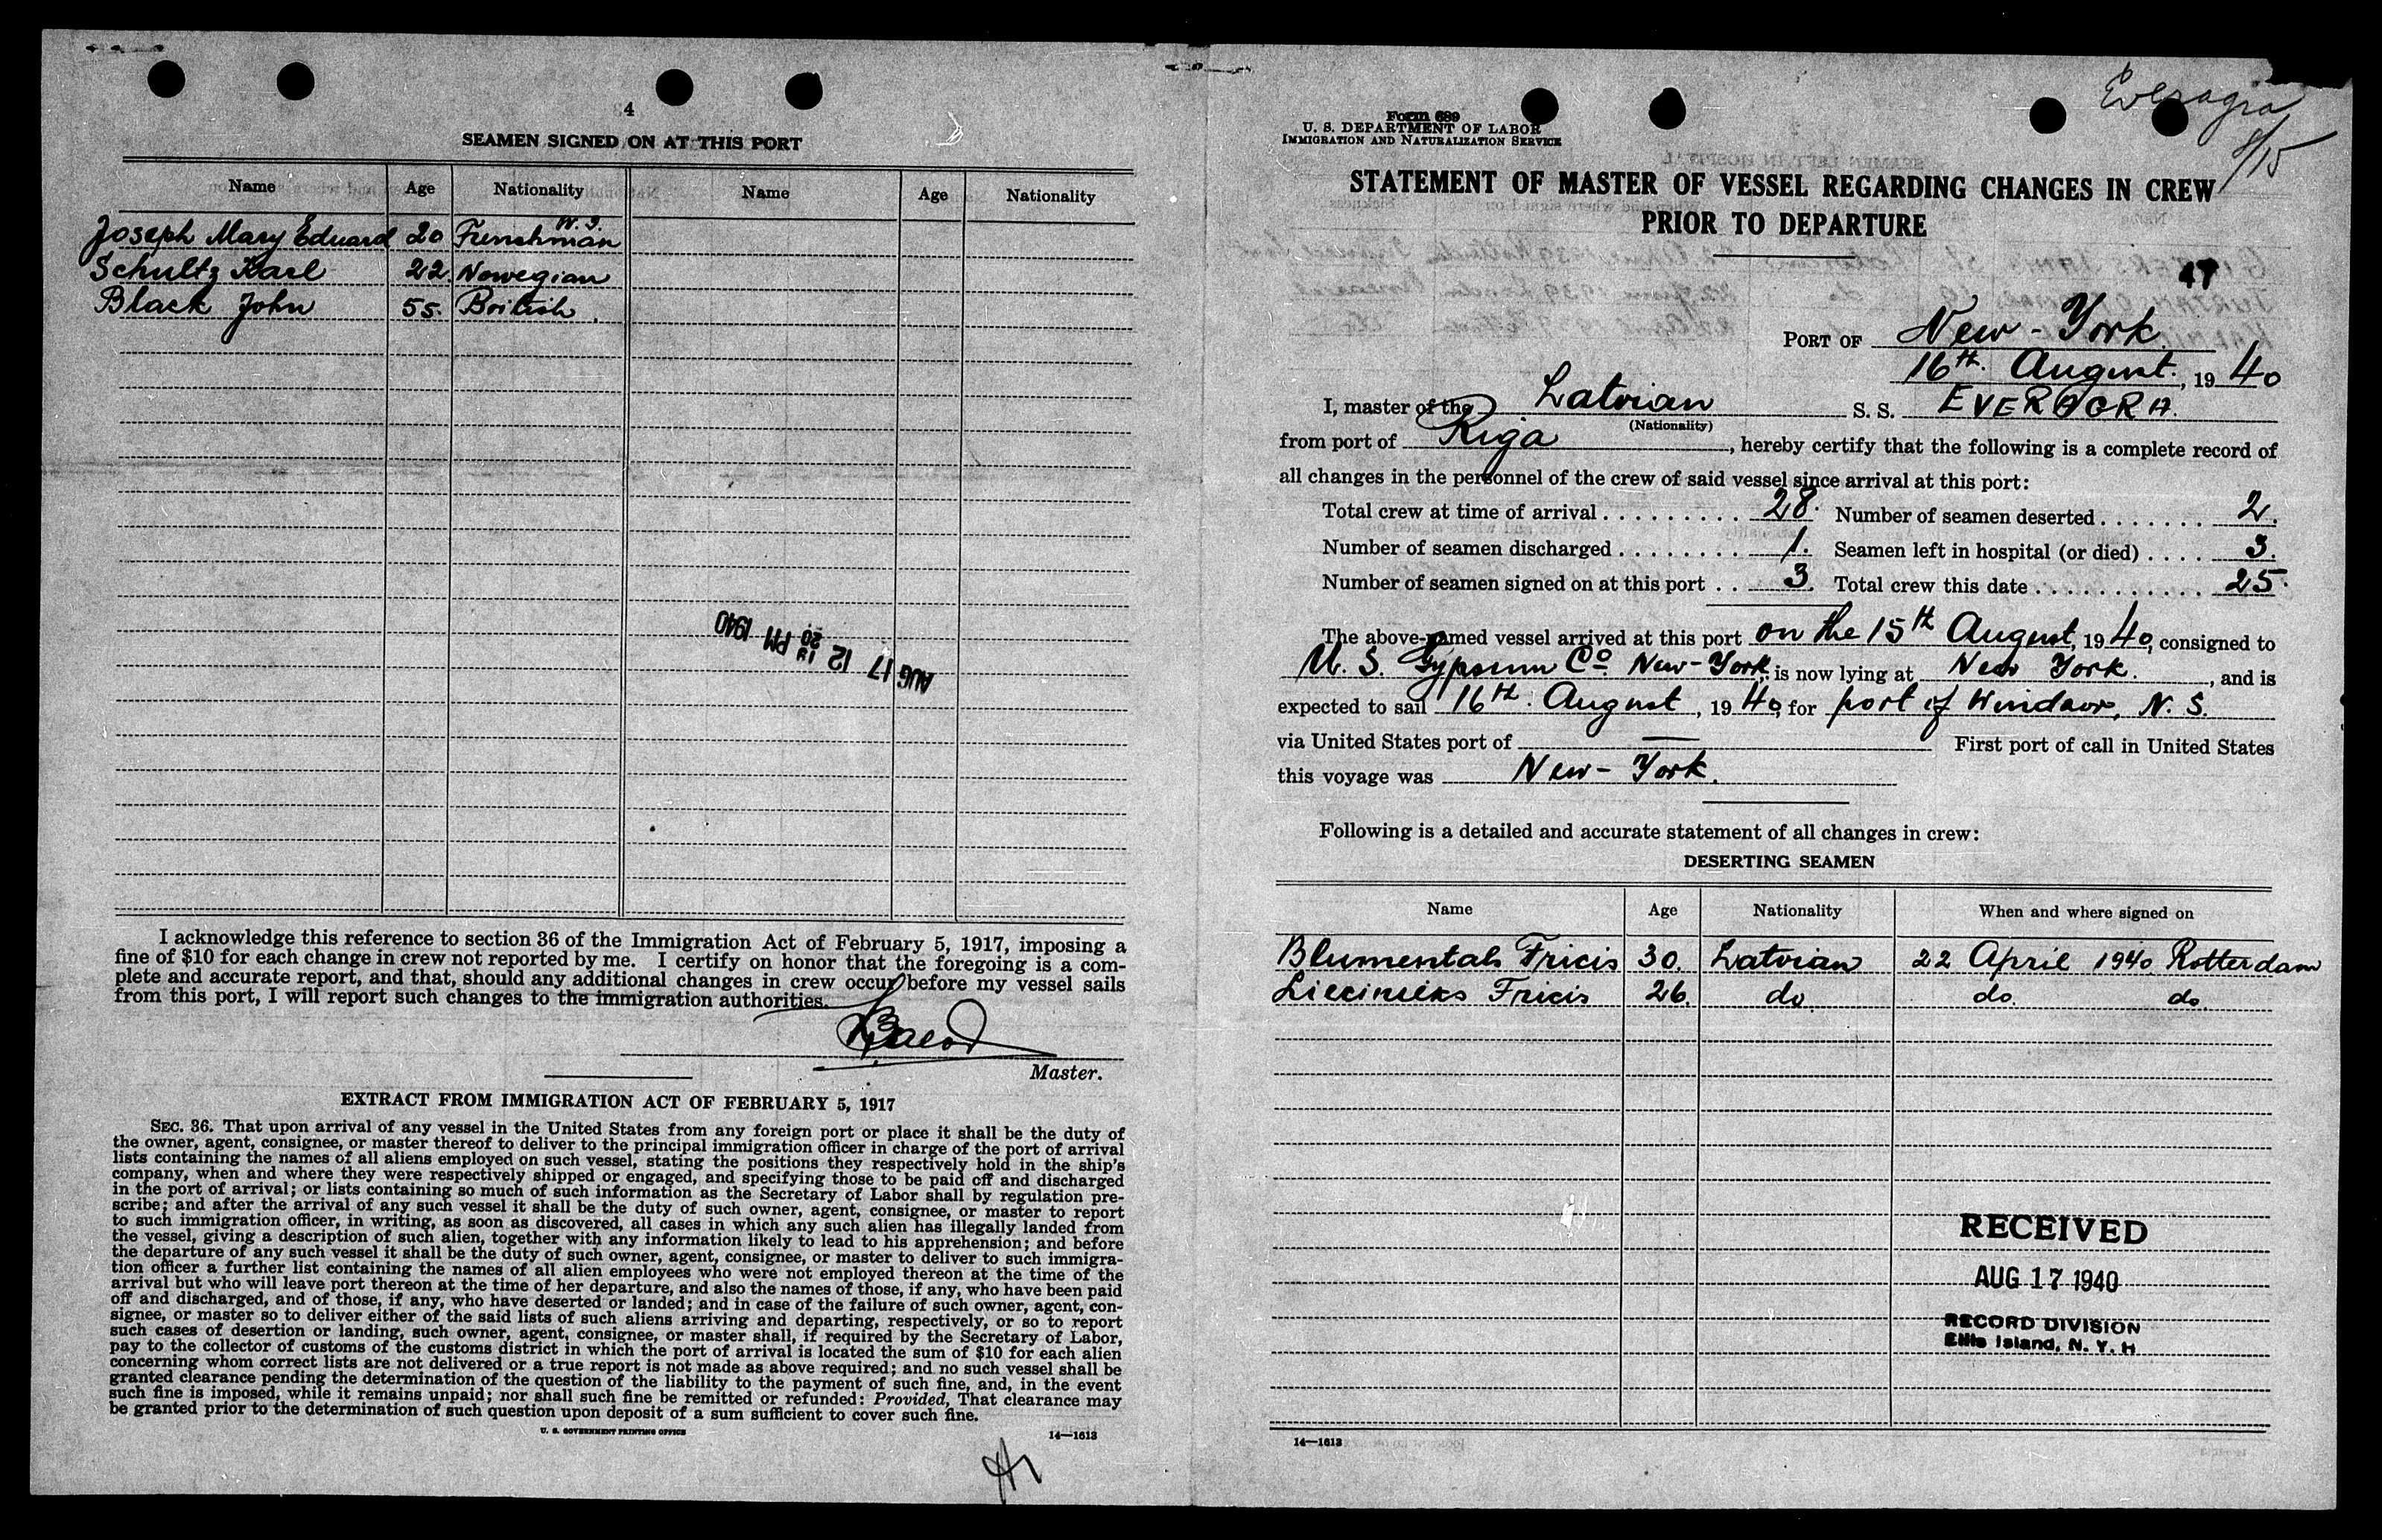 4
SEAMEN SIGNED ON AT THIS PORT
Name Age Nationality Name Age Nationality
Joseph Mary Eduard 20 Frenchman W. I.
Schultz Karl 22 Norwegian
Black John 55. British.
AUG 17 12 20 PM 1940
I acknowledge this reference to section 36 of the Immigration Act of February 5, 1917, imposing a
fine of $10 for each change in crew not reported by me. I certify on honor that the foregoing is a com-
plete and accurate report, and that, should any additional changes in crew occur before my vessel sails
from this port, I will report such changes to the immigration authorities.
Master.
EXTRACT FROM IMMIGRATION ACT OF FEBRUARY 5, 1917
SEC. 36. That upon arrival of any vessel in the United States from any foreign port or place it shall be the duty of
the owner, agent, consignee, or master thereof to deliver to the principal immigration officer in charge of the port of arrival
lists containing the names of all aliens employed on such vessel, stating the positions they respectively hold in the ship's
company, when and where they were respectively shipped or engaged, and specifying those to be paid off and discharged
in the port of arrival; or lists containing so much of such information as the Secretary of Labor shall by regulation pre-
scribe; and after the arrival of any such vessel it shall be the duty of such owner, agent, consignee, or master to report
to such immigration officer, in writing, as soon as discovered, all cases in which any such alien has illegally landed from
the vessel, giving a description of such alien, together with any information likely to lead to his apprehension; and before
the departure of any such vessel it shall be the duty of such owner, agent, consignee, or master to deliver to such immigra-
tion officer a further list containing the names of all alien employees who were not employed thereon at the time of the
arrival but who will leave port thereon at the time of her departure, and also the names of those, if any, who have been paid
off and discharged, and of those, if any, who have deserted or landed; and in case of the failure of such owner, agent, con-
signee, or master so to deliver either of the said lists of such aliens arriving and departing, respectively, or so to report
such cases of desertion or landing, such owner, agent, consignee, or master shall, if required by the Secretary of Labor,
pay to the collector of customs of the customs district in which the port of arrival is located the sum of $10 for each alien
concerning whom correct lists are not delivered or a true report is not made as above required; and no such vessel shall be
granted clearance pending the determination of the question of the liability to the payment of such fine, and, in the event
such fine is imposed, while it remains unpaid; nor shall such fine be remitted or refunded: Provided, That clearance may
be granted prior to the determination of such question upon deposit of a sum sufficient to cover such fine.
U. S. GOVERNMENT PRINTING OFFICE 14—1613
Everagra
8/15
Form 689
U. S. DEPARTMENT OF LABOR
IMMIGRATION AND NATURALIZATION SERVICE
STATEMENT OF MASTER OF VESSEL REGARDING CHANGES IN CREW
PRIOR TO DEPARTURE
47
PORT OF New-York.
16th. August., 1940
I, master of the Latvian S. S. EVERAGRA.
(Nationality)
from port of Riga, hereby certify that the following is a complete record of
all changes in the personnel of the crew of said vessel since arrival at this port:
Total crew at time of arrival 28. Number of seamen deserted 2.
Number of seamen discharged 1. Seamen left in hospital (or died) 3.
Number of seamen signed on at this port 3. Total crew this date 25.
The above-named vessel arrived at this port on the 15th August, 1940, consigned to
U. S. Gypsum Co New-York. is now lying at New York., and is
expected to sail 16th. August, 1940, for port of Windsor, N. S.
via United States port of — First port of call in United States
this voyage was New-York.
Following is a detailed and accurate statement of all changes in crew:
DESERTING SEAMEN
Name Age Nationality When and where signed on
Blumentals Fricis 30. Latvian 22 April 1940 Rotterdam
Fricis 26. do do. do.
RECEIVED
AUG 17 1940
RECORD DIVISION
Ellis Island, N. Y. H
14—1613